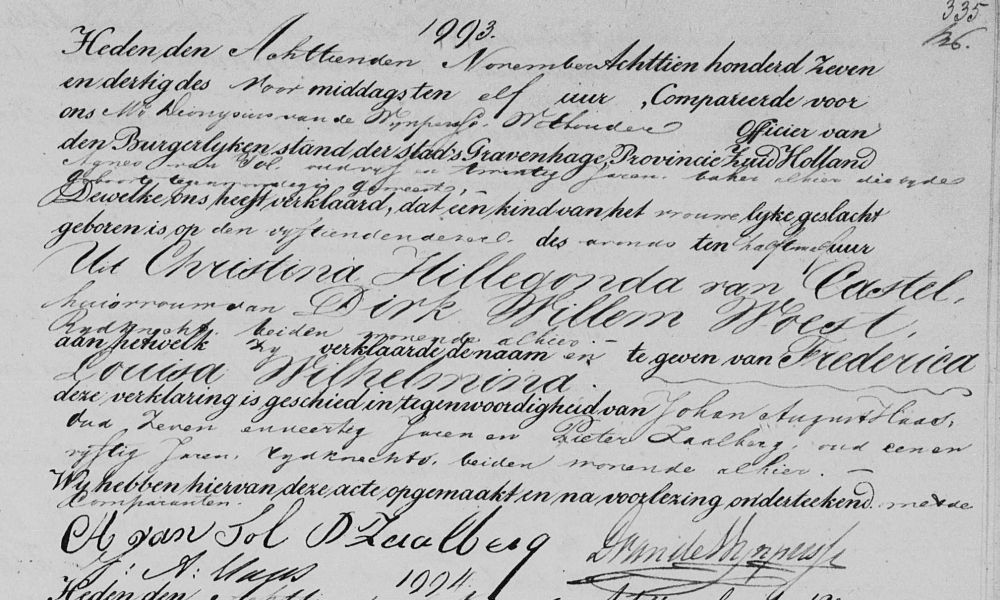 335
126.
1993.
Heden den Achttienden November Achttien honderd Zeven
en dertig des Voor middags ten elf uur, Compareerde voor
ons Mr. Dionysius van de Wijnpersse, Wethouder Officier van
den Burgerlyken stand der stad 's Gravenhage, Provincie Zuid Holland
Agnes van Sol, oud vyf en twintig Jaren, baker alhier die by de
geboorte tegenwoordig is geweest,
Dewelke ons heeft verklaard, dat een kind van het vrouwe lyke geslacht
geboren is op den vyftienden dezer des avonds ten half twaalf uur
Uit Christina Hillegonda van Castel,
huisvrouw van Dirk Willem Woest,
Rydknecht, beiden wonende alhier. -
aan hetwelk zy verklaarde de naam en te geven van Frederica
Louisa Wilhelmina.
deze verklaring is geschied in tegenwoordigheid van Johan August Haas,
oud Zeven en veertig Jaren en Pieter Zaalberg, oud een en
vyftig Jaren, rydknechts, beiden wonende alhier. -
Wy hebben hiervan deze acte opgemaakt en na voorlezing onderteekend. met de
Comparanten.
A van Sol P Zaalberg D van de Wijnpersse
J: A: Haas
1994.
Heden den